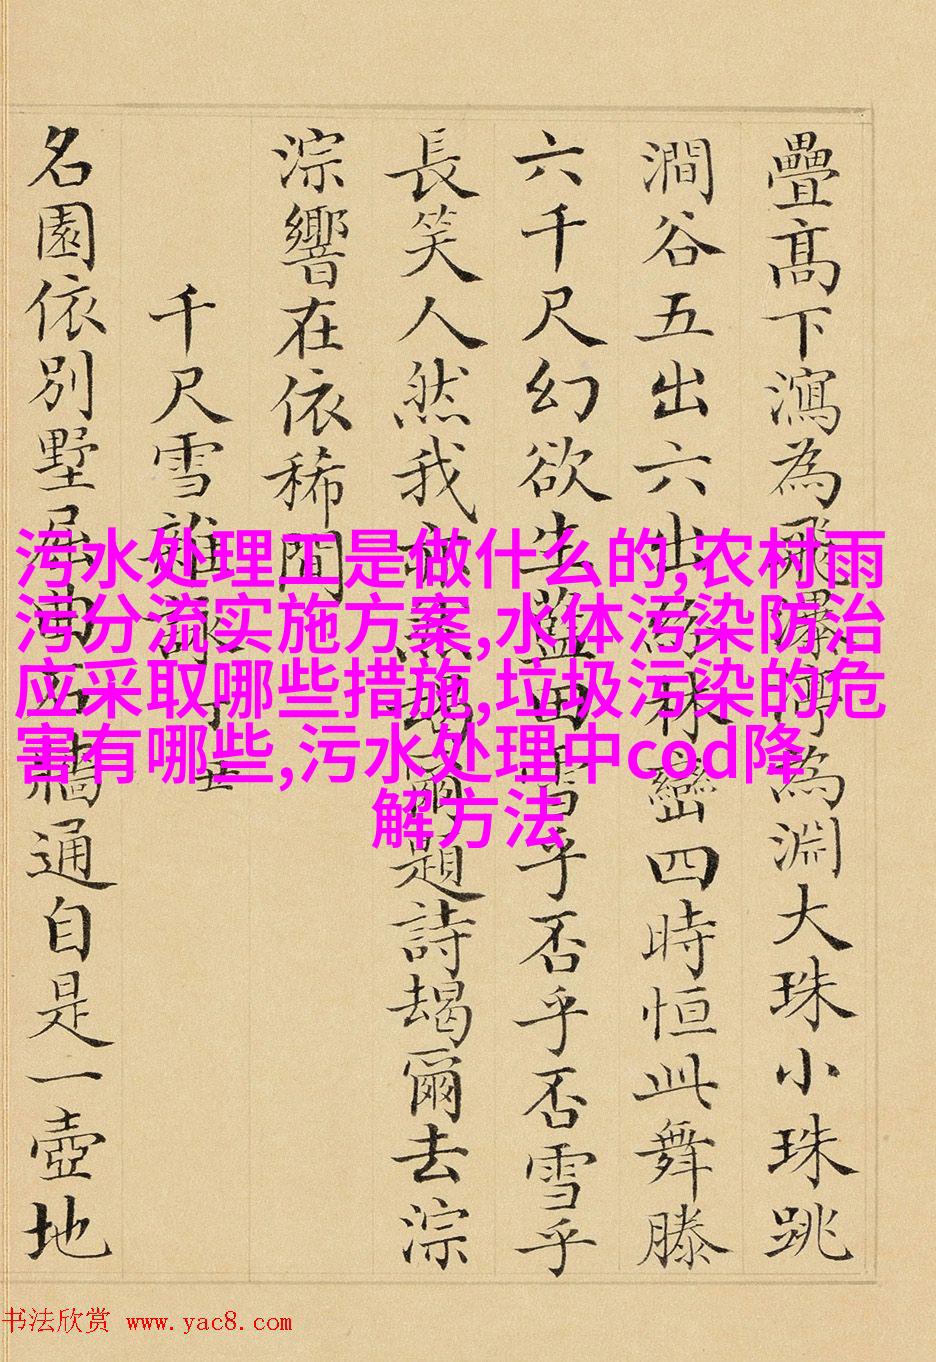 疊高下瀉為飛瀑渟為淵大珠小珠跳
澗谷五出六出紛林巒四時恒此舞滕
六千尺幻欲生藍田雪乎否乎否雪乎
長笑人然我題詩朅爾去淙
淙響在依稀聞
千尺雪雜詠
名園依別墅屈曲石牆通自是一壺地
污水处理工是做什么的,农村雨
污分流实施方案,水体污染防治
应采取哪些措施,垃圾污染的危
害有哪些,污水处理中cod降
解方法
书法欣赏 www.yac8.com